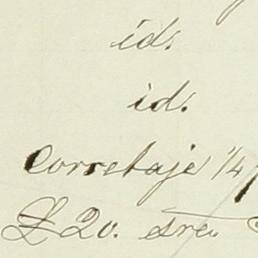 id.
id.
Corretaje 1/4
£ 20. sre.